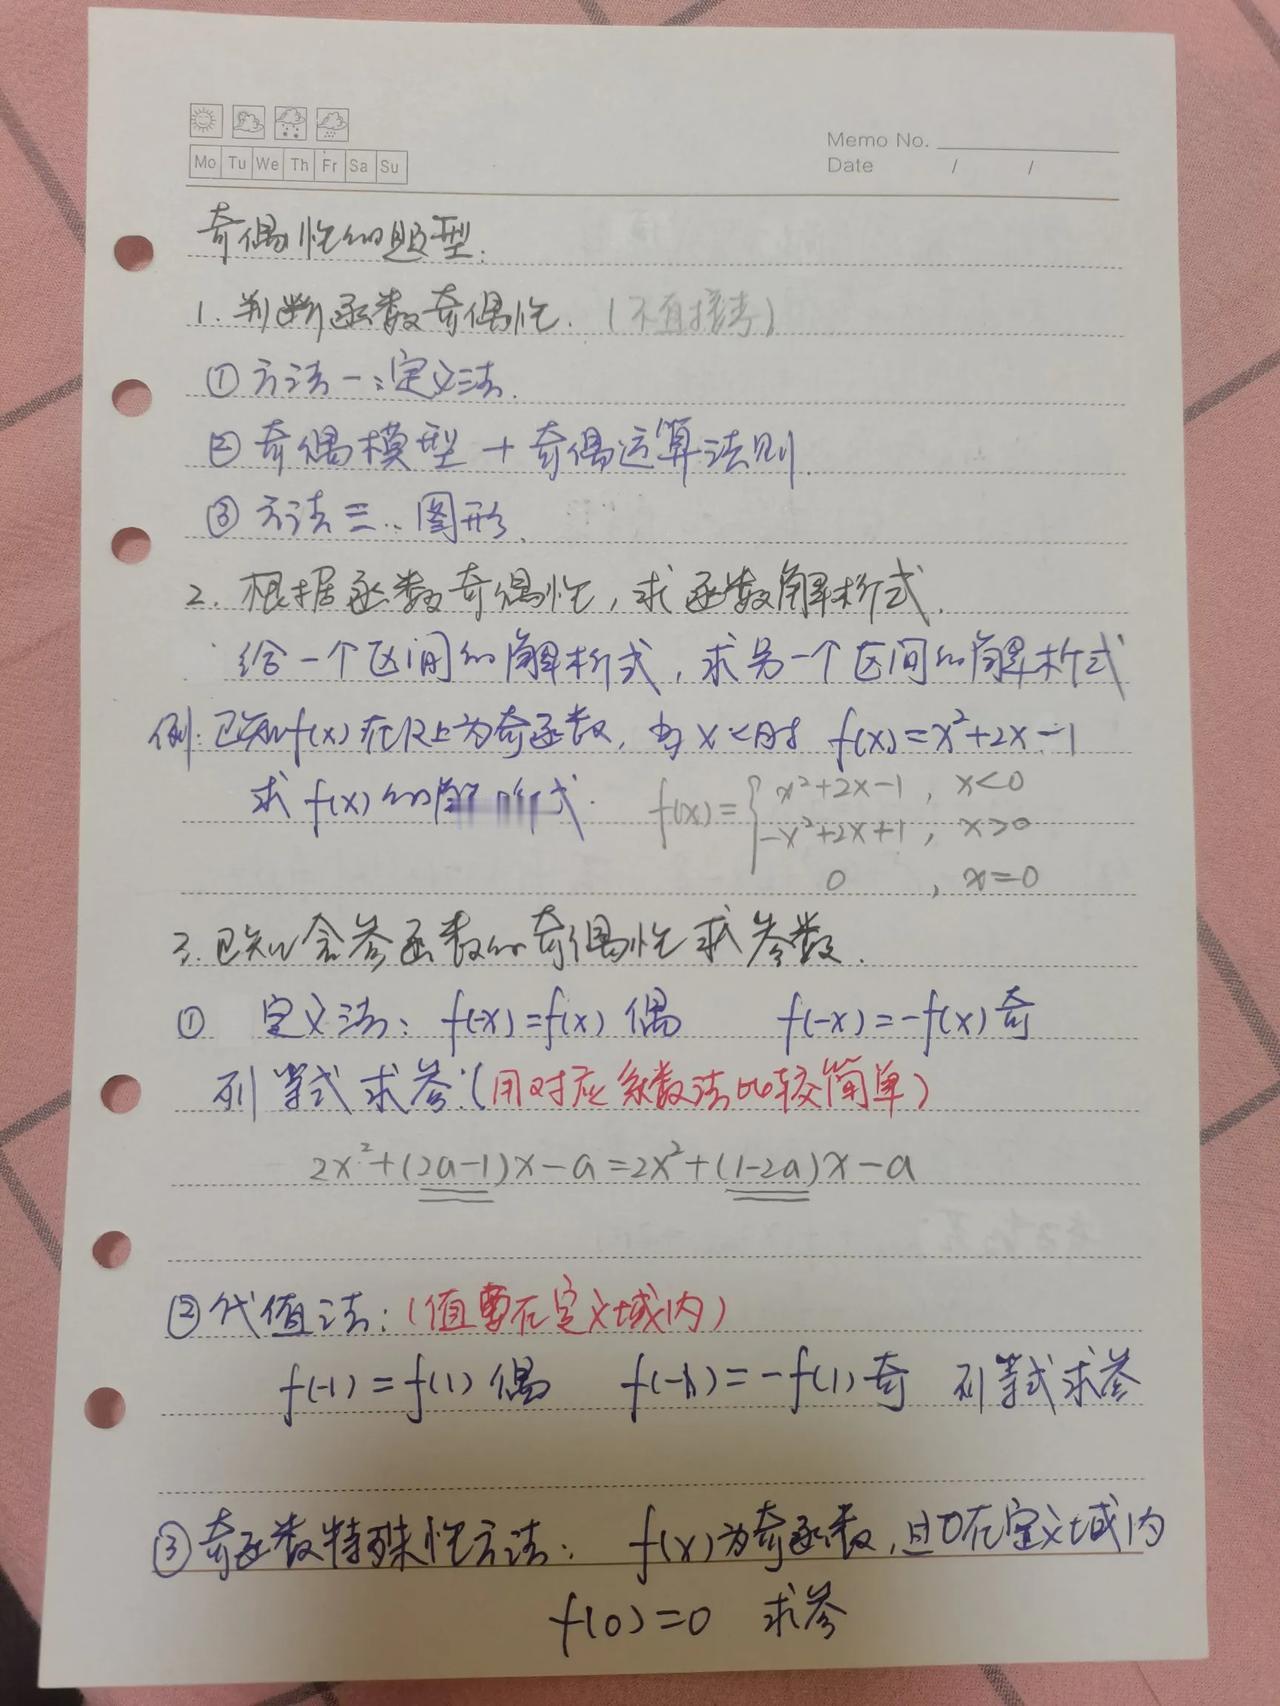 Mo Tu We Th Fr Sa Su
Memo No.
Date / /
奇偶性的题型:
1. 判断函数奇偶性. (不直接考)
① 方法一:定义法.
② 奇偶模型 + 奇偶运算法则.
③ 方法三: 图形.
2. 根据函数奇偶性, 求函数解析式.
给一个区间的解析式, 求另一个区间的解析式
例: 已知f(x)在R上为奇函数, 当x<0时 f(x)=x²+2x-1
求f(x)的解析式.
f(x)={ x²+2x-1, x<0
-x²+2x+1, x>0
0, x=0
3. 已知含参函数的奇偶性求参数.
① 定义法: f(-x)=f(x) 偶 f(-x)=-f(x) 奇
列等式求参:(用对应系数法比较简单)
2x²+(2a-1)x-a=2x²+(1-2a)x-a
② 代值法:(值要在定义域内)
f(-1)=f(1) 偶 f(-1)=-f(1) 奇 列等式求参
③ 奇函数特殊性方法: f(x)为奇函数, 且0在定义域内
f(0)=0 求参